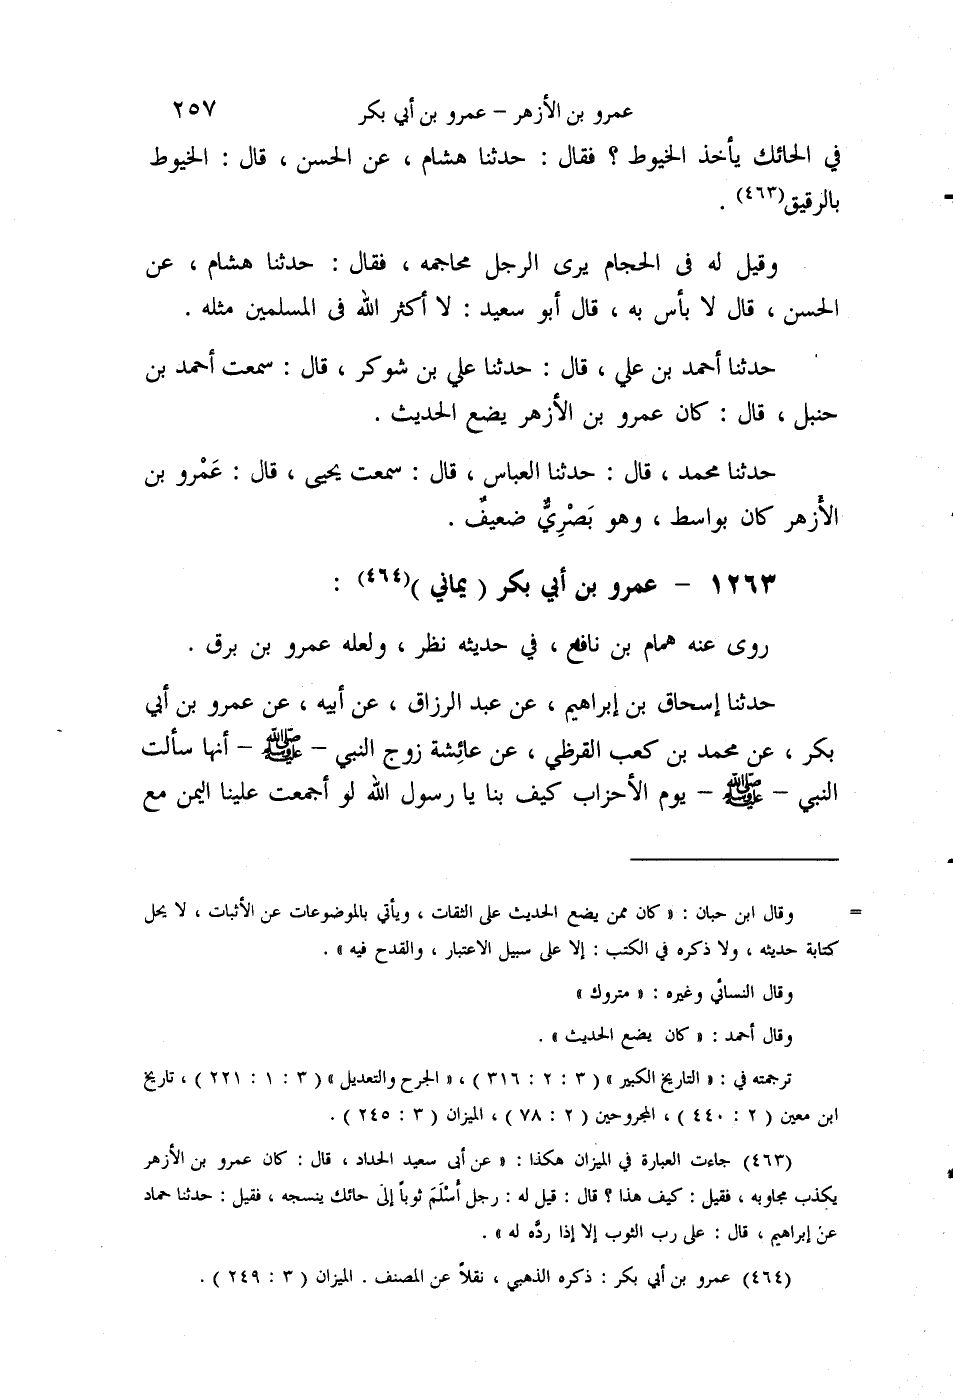 عمرو بن الأزهر – عمرو بن أبي بكر ٢٥٧
في الحائك يأخذ الخيوط ؟ فقال : حدثنا هشام ، عن الحسن ، قال : الخيوط
بالرقيق(٤٦٣) .
وقيل له فى الحجام يرى الرجل محاجمه ، فقال : حدثنا هشام ، عن
الحسن ، قال لا بأس به ، قال أبو سعيد : لا أكثر الله فى المسلمين مثله .
حدثنا أحمد بن علي ، قال : حدثنا علي بن شوكر ، قال : سمعت أحمد بن
حنبل ، قال : كان عمرو بن الأزهر يضع الحديث .
حدثنا محمد ، قال : حدثنا العباس ، قال : سمعت يحيى ، قال : عَمْرو بن
الأزهر كان بواسط ، وهو بَصْرِيٌّ ضعيفٌ .
١٢٦٣ – عمرو بن أبي بكر ( يماني )(٤٦٤) :
روى عنه همام بن نافع ، في حديثه نظر ، ولعله عمرو بن برق .
حدثنا إسحاق بن إبراهيم ، عن عبد الرزاق ، عن أبيه ، عن عمرو بن أبي
بكر ، عن محمد بن كعب القرظي ، عن عائشة زوج النبي – ﷺ – أنها سألت
النبي – ﷺ – يوم الأحزاب كيف بنا يا رسول الله لو أجمعت علينا اليمن مع
= وقال ابن حبان : « كان ممن يضع الحديث على الثقات ، ويأتي بالموضوعات عن الأثبات ، لا يحل
كتابة حديثه ، ولا ذكره في الكتب : إلا على سبيل الاعتبار ، والقدح فيه » .
وقال النسائي وغيره : « متروك »
وقال أحمد : « كان يضع الحديث » .
ترجمته في : « التاريخ الكبير » ( ٣ : ٢ : ٣١٦ ) ، « الجرح والتعديل » ( ٣ : ١ : ٢٢١ ) ، تاريخ
ابن معين ( ٢ : ٤٤٠ ) ، المجروحين ( ٢ : ٧٨ ) ، الميزان ( ٣ : ٢٤٥ ) .
(٤٦٣) جاءت العبارة في الميزان هكذا : « عن أبى سعيد الحداد ، قال : كان عمرو بن الأزهر
يكذب مجاوبه ، فقيل : كيف هذا ؟ قال : قيل له : رجل أَسْلَمَ ثوباً إلى حائك ينسجه ، فقيل : حدثنا حماد
عن إبراهيم ، قال : على رب الثوب إلا إذا ردَّه له » .
(٤٦٤) عمرو بن أبي بكر : ذكره الذهبي ، نقلاً عن المصنف . الميزان ( ٣ : ٢٤٩ ) .